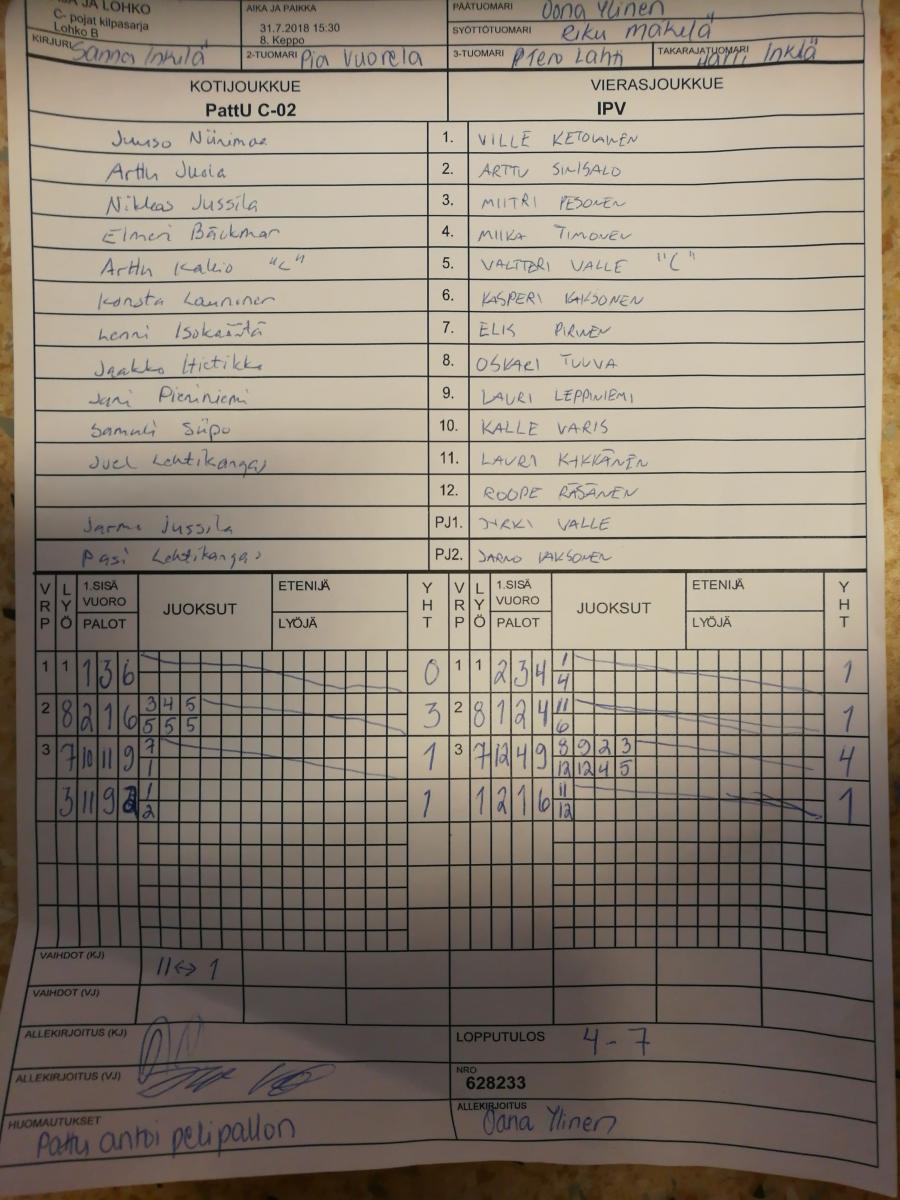 JA LOHKO
C- pojat kilpasarja
Lohko B
AIKA JA PAIKKA
31.7.2018 15:30
8. Keppo
PÄÄTUOMARI Oona Ylinen
SYÖTTÖTUOMARI Riku Mäkelä
KIRJURI Sanna Inkilä 2-TUOMARI Pia Vuorela 3-TUOMARI PTero Lahti TAKARAJATUOMARI Inkilä
KOTIJOUKKUE VIERASJOUKKUE
PattU C-02 IPV
Juuso Niinimaa 1. VILLE KETOLAINEN
Arttu Juola 2. ARTTU SINISALO
Niklas Jussila 3. MIITRI PESONEN
Elmeri Bäckman 4. MIIKA TIMONEN
Arttu Kallio "C" 5. VALTTERI VALLE "C"
Konsta Launonen 6. KASPERI KAKSONEN
Lenni Isokääntä 7. ELIS PIRINEN
Jaakko Hietikko 8. OSKARI TUUVA
Jani Pieniniemi 9. LAURI LEPPINIEMI
Samuli Siipo 10. KALLE VARIS
Juel Lehtikangas 11. LAURI KÄKKÄNEN
12. ROOPE RÄSÄNEN
Jarmo Jussila PJ1. JYRKI VALLE
Pasi Lehtikangas PJ2. JARNO KAKSONEN
VRP LYÖ 1.SISÄ VUORO PALOT JUOKSUT ETENIJÄ LYÖJÄ YHT VRP LYÖ 1.SISÄ VUORO PALOT JUOKSUT ETENIJÄ LYÖJÄ YHT
1 1 1 3 6 0 1 1 2 3 4 1 1
4
2 8 2 1 6 3 4 5 3 2 8 1 2 4 11 1
5 5 5 6
3 7 10 11 9 7 1 3 7 12 4 9 8 9 2 3 4
1 12 12 4 5
3 11 9 2 1 1 1 2 1 6 11 1
2 12
VAIHDOT (KJ) 11↔1
VAIHDOT (VJ)
ALLEKIRJOITUS (KJ) LOPPUTULOS 4-7
ALLEKIRJOITUS (VJ) NRO
628233
HUOMAUTUKSET ALLEKIRJOITUS
Pattu antoi pelipallon Oona Ylinen